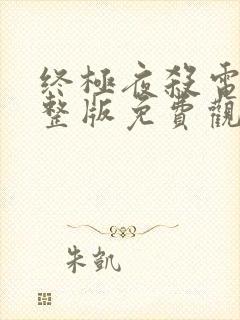 终極夜殺電
整版免費觀
朱凱